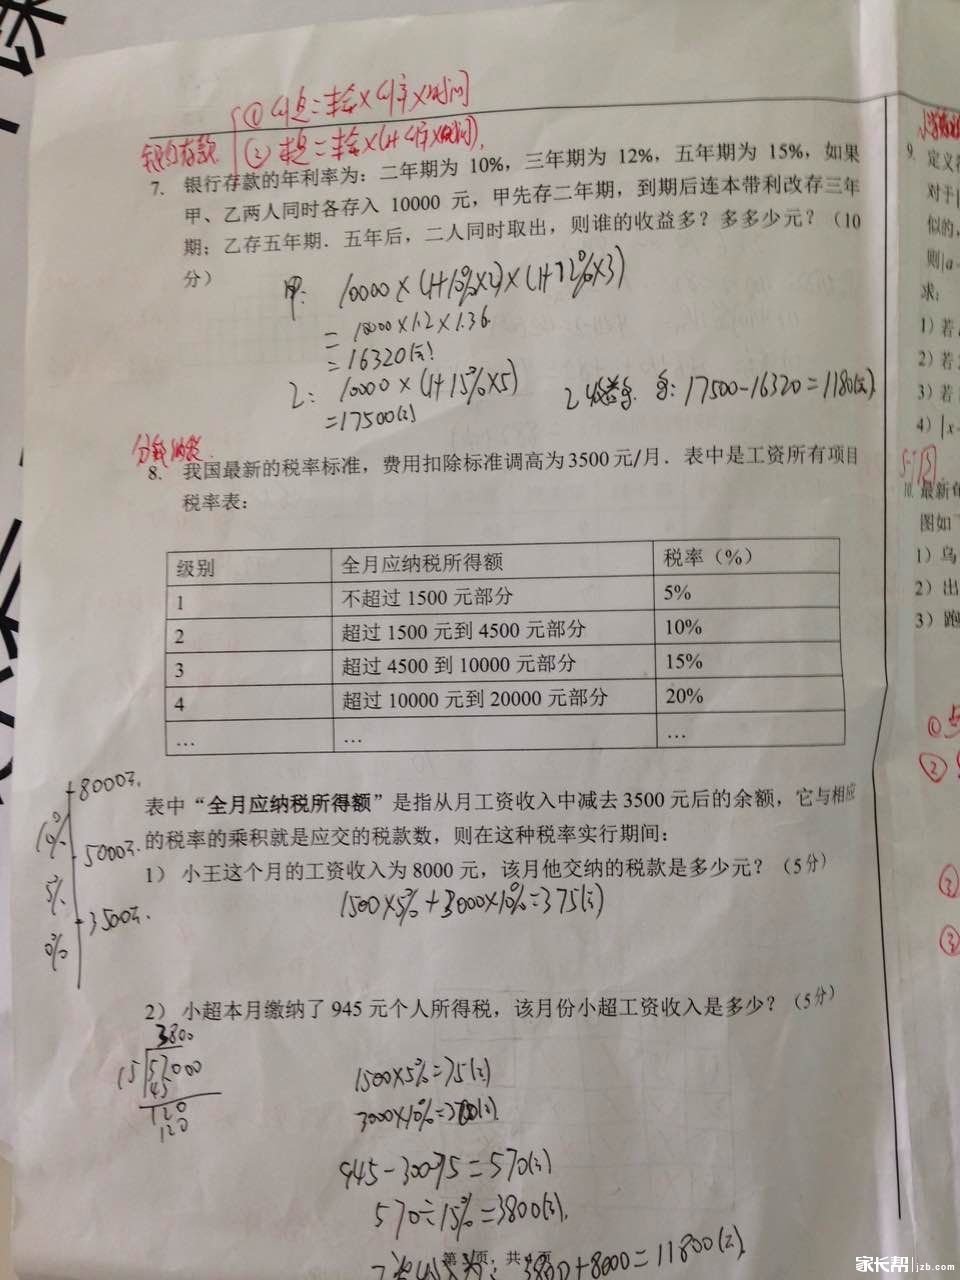 ① 利息=本金×利率×时间
银行存款 ② 本息=本金×(1+利率×时间).
7. 银行存款的年利率为：二年期为 10%，三年期为 12%，五年期为 15%，如果
甲、乙两人同时各存入 10000 元，甲先存二年期，到期后连本带利改存三年
期；乙存五年期．五年后，二人同时取出，则谁的收益多？多多少元？（10
分）
甲: 10000×(1+10%×2)×(1+12%×3)
=10000×1.2×1.36
=16320(元)
乙: 10000×(1+15%×5)
=17500(元)
乙收益多. 多:17500-16320=1180(元).
分段纳税.
8. 我国最新的税率标准，费用扣除标准调高为3500元/月．表中是工资所有项目
税率表：
级别 全月应纳税所得额 税率（%）
1 不超过 1500 元部分 5%
2 超过 1500 元到 4500 元部分 10%
3 超过 4500 到 10000 元部分 15%
4 超过 10000 元到 20000 元部分 20%
… … …
8000元.
10%
5000元.
5%
3500元.
0%
表中“全月应纳税所得额”是指从月工资收入中减去3500元后的余额，它与相应
的税率的乘积就是应交的税款数，则在这种税率实行期间：
1） 小王这个月的工资收入为 8000 元，该月他交纳的税款是多少元？（5分）
1500×5%+3000×10%=375(元)
2） 小超本月缴纳了 945 元个人所得税，该月份小超工资收入是多少？（5分）
3800
15 57000
45
120
120
1500×5%=75(元)
3000×10%=300(元).
945-300-75=570(元)
570÷15%=3800(元).
3800+8000=11800(元).
第 3 页，共 4 页
9. 定义
对于|
似的，
则|a-
求：
1）若
2）若
3）若
4）|x-
10. 最新
图如
1）乌
2）出
3）跑
①
②
③
③
家长帮 jzb.com